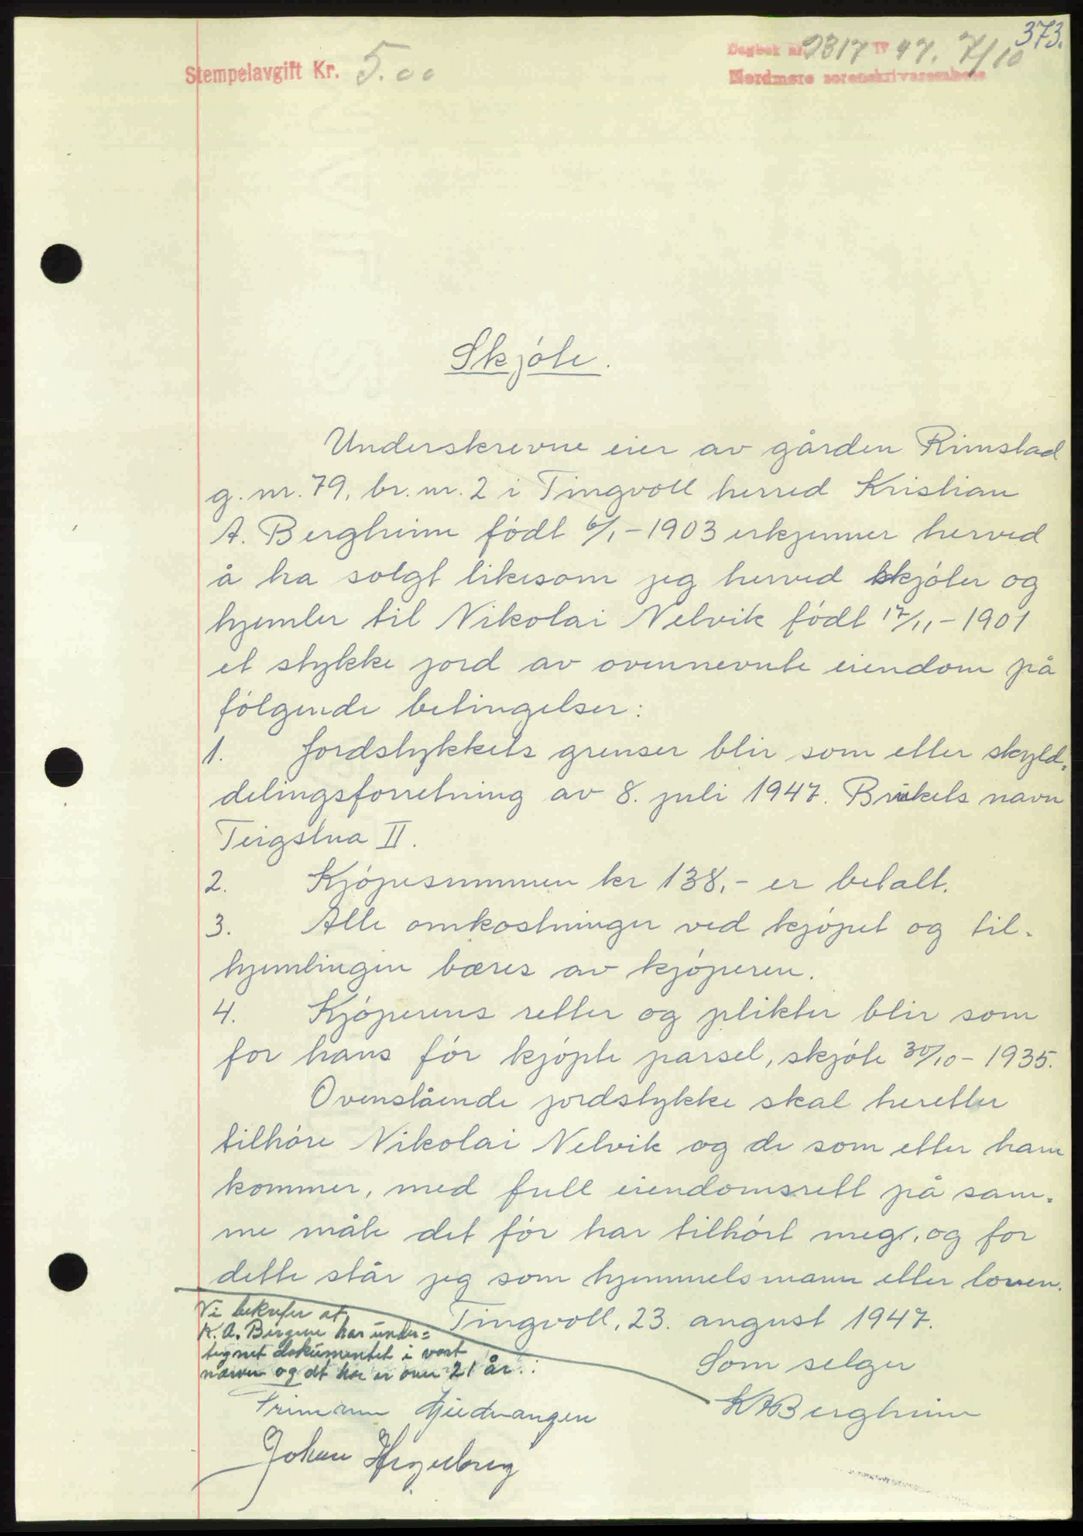 373.
Stempelavgift Kr. 5.00
Dagbok nr. 2317 IV 47. 7/10
Nordmøre sorenskriverembede
Skjöte.
Underskrevne eier av gården Rimstad
g. nr. 79, br. nr. 2 i Tingvoll herred Kristian
A. Bergheim födt 6/1-1903 erkjenner herved
å ha solgt likesom jeg herved skjöter og
hjemler til Nikolai Nelvik födt 17/11-1901
et stykke jord av ovennevnte eiendom på
fölgende betingelser:
1. Jordstykkets grenser blir som etter skyld-
delingsforretning av 8. juli 1947. Brukets navn
Teigstua II.
2. Kjöpesummen kr 138,- er betalt.
3. Alle omkostninger ved kjöpet og til-
hjemlingen bæres av kjöperen.
4. Kjöperens retter og plikter blir som
for hans för kjöpte parsel, skjöte 30/10-1935.
Ovenstående jordstykke skal heretter
tilhöre Nikolai Nelvik og de som etter ham
kommer, med full eiendomsrett på sam-
me måte det för har tilhört meg, og for
dette står jeg som hjemmelsmann etter loven.
Tingvoll, 23. august 1947.
Som selger
K A Bergheim
Vi bekrefter at
K. A. Bergheim har under-
tegnet dokumentet i vårt
nærvær og at han er over 21 år.
Gjedvangen
Johan